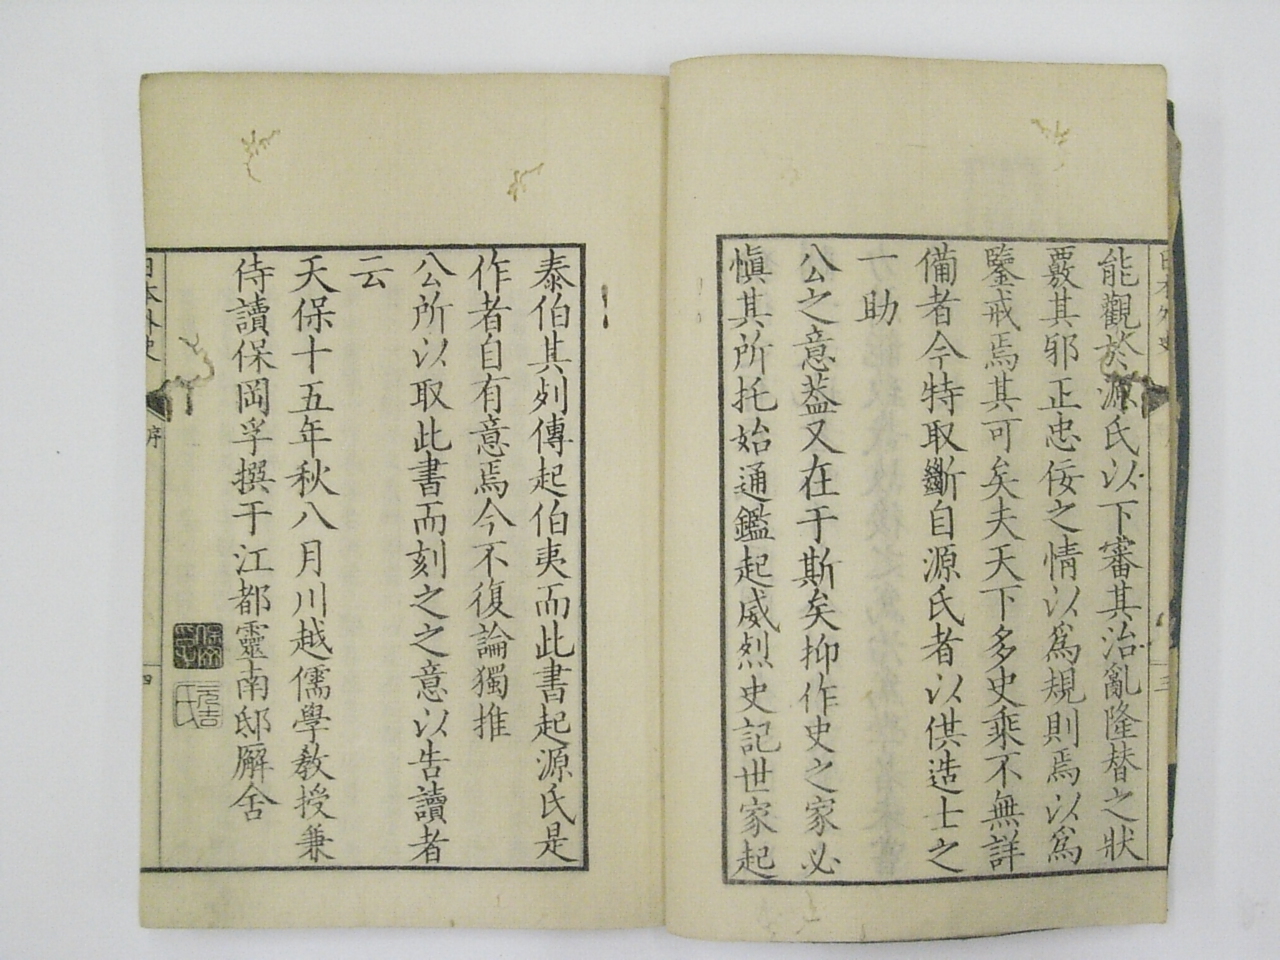 能觀於源氏以下審其治亂隆替之狀
覈其邪正忠佞之情以爲規則焉以爲
鑒戒焉其可矣夫天下多史乘不無詳
備者今特取斷自源氏者以供造士之
一助
公之意葢又在于斯矣抑作史之家必
愼其所托始通鑑起威烈史記世家起
泰伯其列傳起伯夷而此書起源氏是
作者自有意焉今不復論獨推
公所以取此書而刻之之意以告讀者
云
天保十五年秋八月川越儒學教授兼
侍讀保岡孚撰于江都靈南邸廨舍
日本外史
序
四